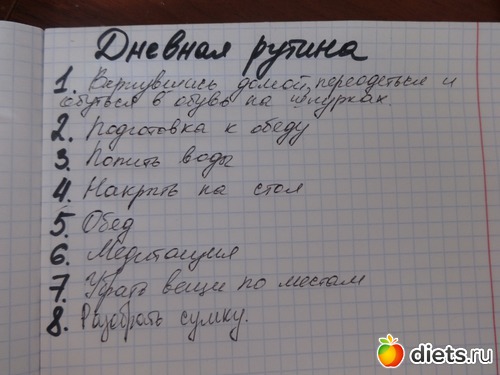 Дневная рутина
1. Вернувшись домой, переодеться и
обуться в обувь на шнурках.
2. Подготовка к обеду
3. Попить воды
4. Накрыть на стол
5. Обед
6. Медитация
7. Убрать вещи по местам
8. Разобрать сумку.
diets.ru